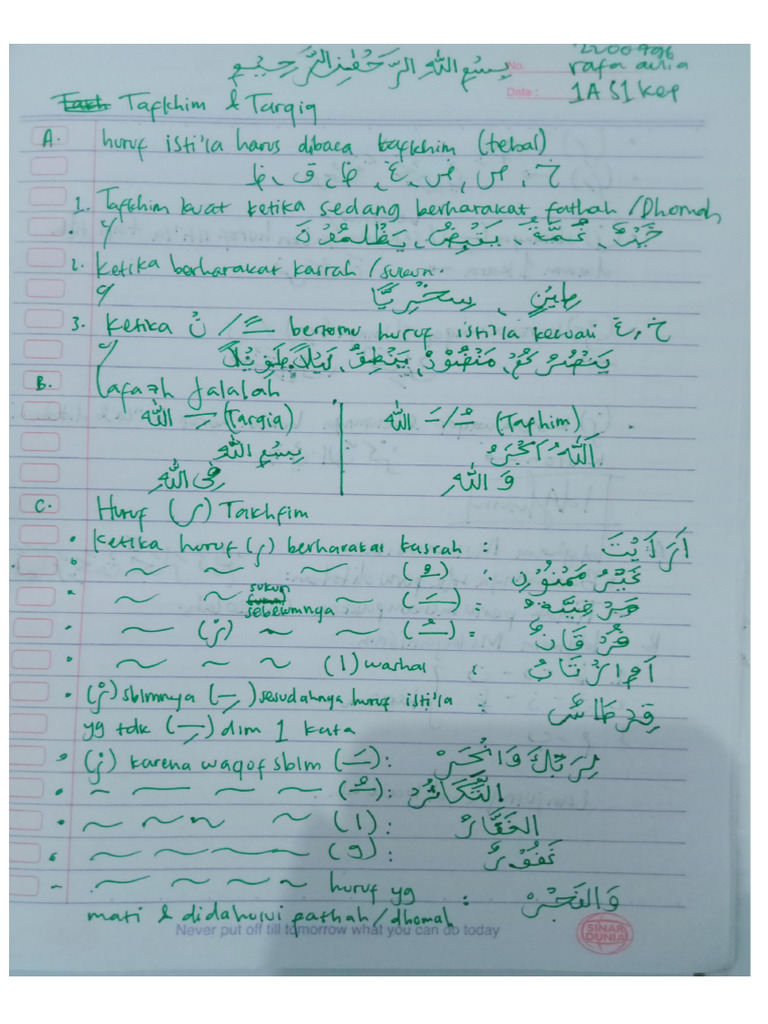 2200496
بِسْمِ اللهِ الرَّحْمٰنِ الرَّحِيْمِ No. rafa aulia
Date : 1A S1 kep
Tafkhim & Tarqiq
A. huruf isti'la harus dibaca tafkhim (tebal)
خ، ص، ض، غ، ط، ق، ظ
1. Tafkhim kuat ketika sedang berharakat fathah / Dhomah
غُمَّةً، يَقْبِضُ، يَظْلِمُوْنَ
2. ketika berharakat kasrah / sukun.
طِيْنٍ، سِخْرِيًّا
3. ketika نْ / ـًـٍـٌ bertemu huruf isti'la kecuali غ، خ
يَنْصُرْكُمْ، مَنْضُوْدٍ، يَنْطِقُ، لَيْلًا طَوِيْلًا
B. Lafazh Jalalah
اللهِ ـِـ (Tarqiq) اللهِ ـَـ/ـُـ (Tafhim)
بِسْمِ اللهِ
فِى اللهِ وَ اللهِ
C. Huruf (ر) Takhfim
• ketika huruf (ر) berharakat kasrah : اَرَاَيْتَ
• ~ ~ ~ (ـُـ) : غَيْرُ مَمْنُوْنٍ
sukun
• ~ ~ ~ sebelumnya (ـَـ) :
• ~ (رْ) ~ ~ (ـُـ) : فُرْقَانٌ
• ~ ~ ~ (ا) washal : اَمِ ارْتَابُ
• (رْ) sblmnya (ـِـ) sesudahnya huruf isti'la : قِرْطَاسٌ
yg tdk (ـِـ) dlm 1 kata
• (رْ) karena waqof sblm (ـَـ) : لِرَبِّكَ وَانْحَرْ
• ~ ~ ~ ~ (ـُـ) : التَّكَاثُرُ
• ~ ~ ~ ~ (ا) : الغَفَّارُ
• ~ ~ ~ ~ (و) : غَفُوْرٌ
- ~ ~ ~ ~ huruf yg : وَالفَجْرِ
mati & didahului fathah / dhomah
Never put off till tomorrow what you can do today
SINAR DUNIA